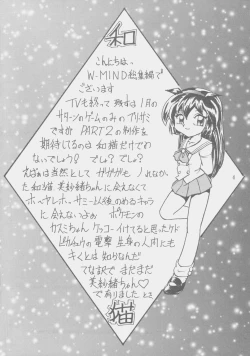 和
こんにちは、
W-MIND総集編で
ございます
TVも終って残すは1月の
サターンのゲームのみのプリサミ
ですが PART2の制作を
期待してるのは和猫だけでわ
ないでしょう! でしょ?でしょ?
えばぁは当然として
た和猫。美紗緒ちゃんに会えなくて
ホーヤレホー、サミー以後のめるキャラ
に会えないよぉ ポケモンの
カスミちゃん ケッコーイけてると思ったケド
ピカチュウの電撃 生身の人間にも
キくとは知りなんだ
てな訳で まだまだ
美紗緒ちゃん♡
でありました
猫